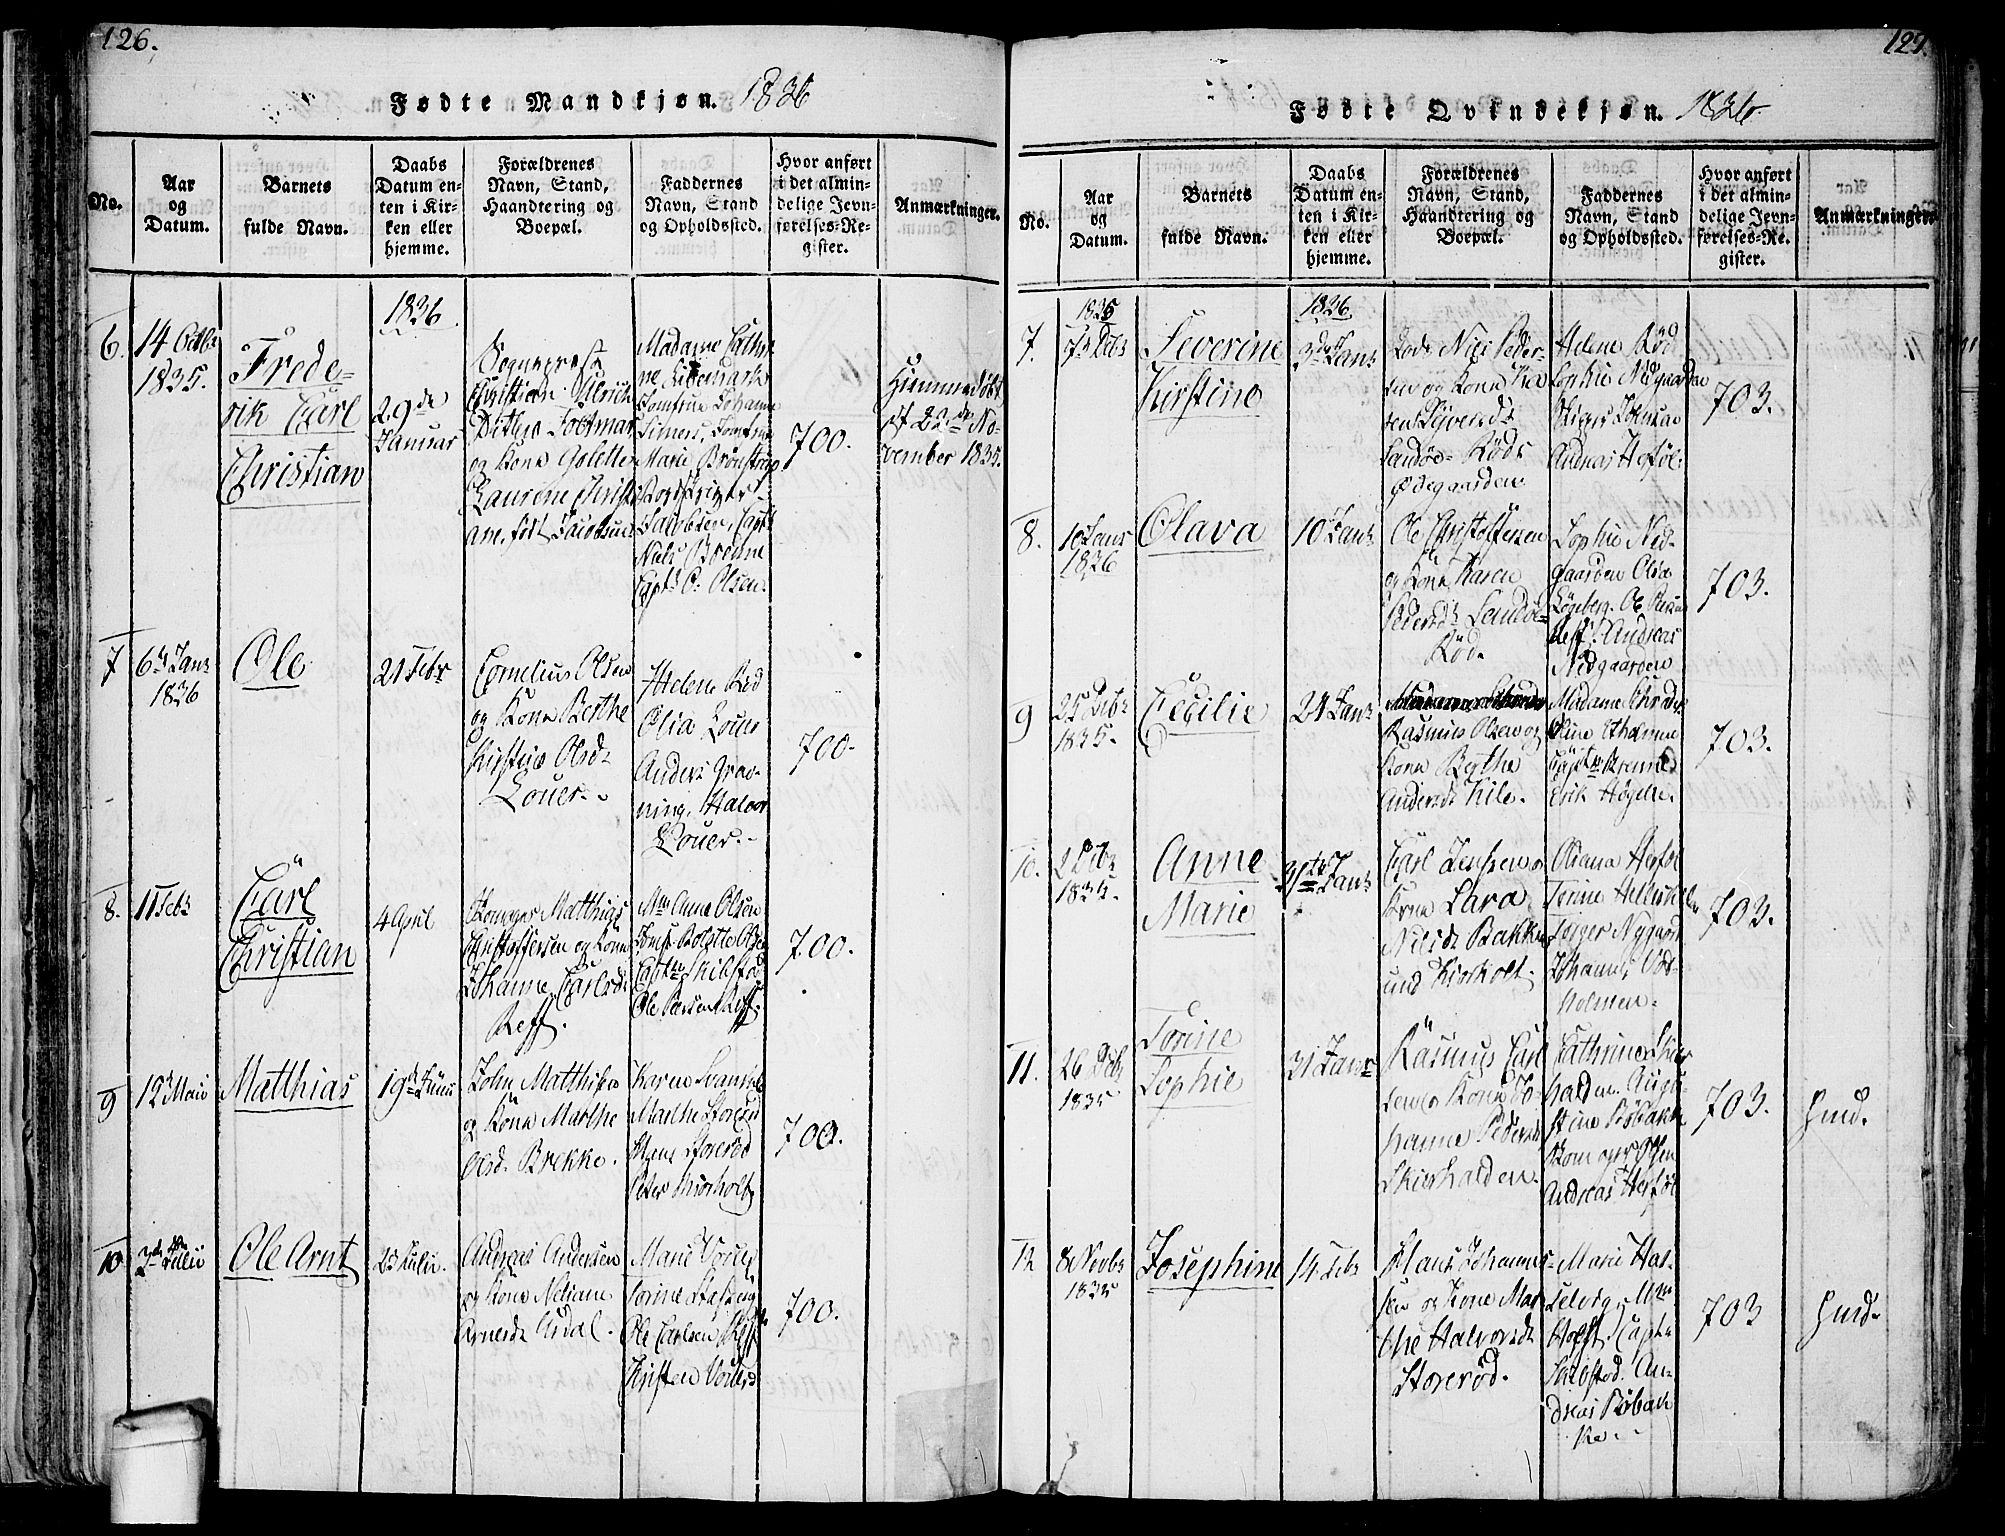 126.
Fødte Mandkjøn. 1836
No.
Aar
og
Datum.
Barnets
fulde Navn.
Daabs
Datum en-
ten i Kir-
ken eller
hjemme.
Forældrenes
Navn, Stand,
Haandtering og
Boepæl.
Faddernes
Navn, Stand
og Opholdssted.
Hvor anført
i det almin-
delige Jevn-
førelses-Re-
gister.
Anmærkninger.
6.
14 Octbr
1835.
Frede-
rik Carl
Christian
1836
29de
Januar
Sogneprest
Christian Ulrich
og Kone Golette
Laurene Christi
ane, født Jacobsen
Madame Cathri
ne
Jomfrue Johanne
Marie
Jacobsen, Capt
Niels Brønne
Capt. C. Olsen.
700.
Hjemmedøbt
d. 22de No-
vember 1835.
7
6te Janr
1836
Ole
21 Febr
Cornelius Olsen
og Kone Berthe
Kirstine Olsdr
Louer.
Helene Rød
Olia Louer
Anders Grav-
ning, Halvor
Louer.
700.
8.
11 Febr
Carl
Christian
4 April
Matthias
Christoffersen og Kone
Johanne Carlsdr
Reff.
Mm Anne Olsen
Jomf Bolette Olsen
Capt Kilstød
Ole Larsen Reff.
700.
9
12te Maii
Matthias
19de Junii
John Matthisen
og Kone Marthe
Olsd. Brekke.
Karen
Marthe Storerød
Hans Storerød
Peter Kiorholt
700.
10
2den Julii
Ole Arnt
23 Julii.
Andreas Andersen
og Kone Neliane
Arnesdr Urdal.
Marie
Ole Carlsen Reff
Kristen
700.
127.
Fødte Qvindekjøn. 1836.
No.
Aar
og
Datum.
Barnets
fulde Navn.
Daabs
Datum en-
ten i Kir-
ken eller
hjemme.
Forældrenes
Navn, Stand,
Haandtering og
Boepæl.
Faddernes
Navn, Stand
og Opholdssted.
Hvor anført
i det almin-
delige Jevn-
førelses-Re-
gister.
Anmærkninger
7.
1835
Debr
Severine
Kirstine
1836
3de Janr
Lods Niels Peder-
sen og Kone Ka
Sandøe-Røds
Ødegaarden
Helene Rød
Sophie Nedgaarden
Andreas Herføl.
703.
8.
10 Janr
1836
Olava
10 Janr
Ole Christoffersen
og Kone Karen
Pedersdr Sandøe-
Rød.
Sophie Ned-
gaarden Olia
Løgeberg. Ole
Reff. Andreas
Nedgaarden
703.
9
25 Debr
1835.
Cecilie
24 Janr
Rasmus Olsen og
Kone Berthe
Andersdr Kile.
Madame Schrøder
Capt Brenne
Erik Høyelse.
703.
10.
2 Debr
1835.
Anne
Marie
31te Janr
Carl Jensen o
Kone Lara
Nilsdr Bakke
und Kiorholt.
Oliana Herføl
Torine
Torger Nygaard
Johannes Vod-
holmen.
703.
11.
26 Debr
1835
Torine
Sophie
31 Janr
Rasmus Carl
sen og Kone Jo-
hanne Pedersdr
Skierhalden.
Cathrine Skier
halden. Augu-
stine Røbakke
Andreas Herføl
703.
Hmd.
12
8 Novbr
1835
Josephine
14 Febr
Hans Johannes-
sen og Kone Mar
the Halvorsdr
Storerød.
Marie Has-
selvig. Mm
Holst, Capt.
Kilstød. An-
dreas Røbak
ke.
703
Hmd.